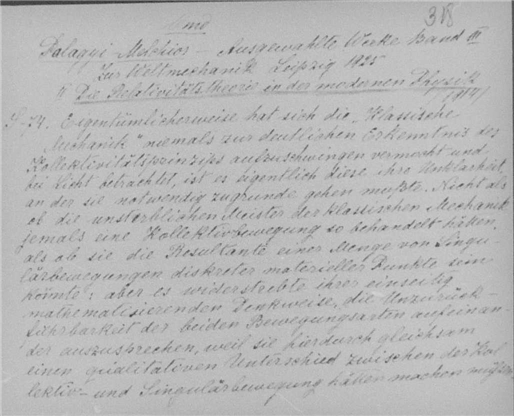 318
Palagyi Melchior - Ausgewählte Werke Band III
Zur Weltmechanik Leipzig 1925
" Die Relativitätstheorie in der modernen Physik
(1914)
S. 74. Eigentümlicherweise hat sich die "Klassische
Mechanik" niemals zur deutlichen Erkenntnis des
Kollektivitätsprinzips aufzuschwingen vermocht und
bei Licht betrachtet, ist es eigentlich diese ihre Unklarheit,
an der sie notwendig zugrunde gehen mußte. Nicht als
ob die unsterblichen Meister der klassischen Mechanik
jemals eine Kollektivbewegung so behandelt hätten,
als ob sie die Resultante einer Menge von Singu-
lärbewegungen diskreter materieller Punkte sein
könnte: aber es widerstrebte ihrer einseitig
mathematisierenden Denkweise, die Unzurück-
führbarkeit der beiden Bewegungsarten aufeinan-
der auszusprechen, weil sie hierdurch gleichsam
einen qualitativen Unterschied zwischen der Kol
lektiv- und Singulärbewegung hätten machen müssen